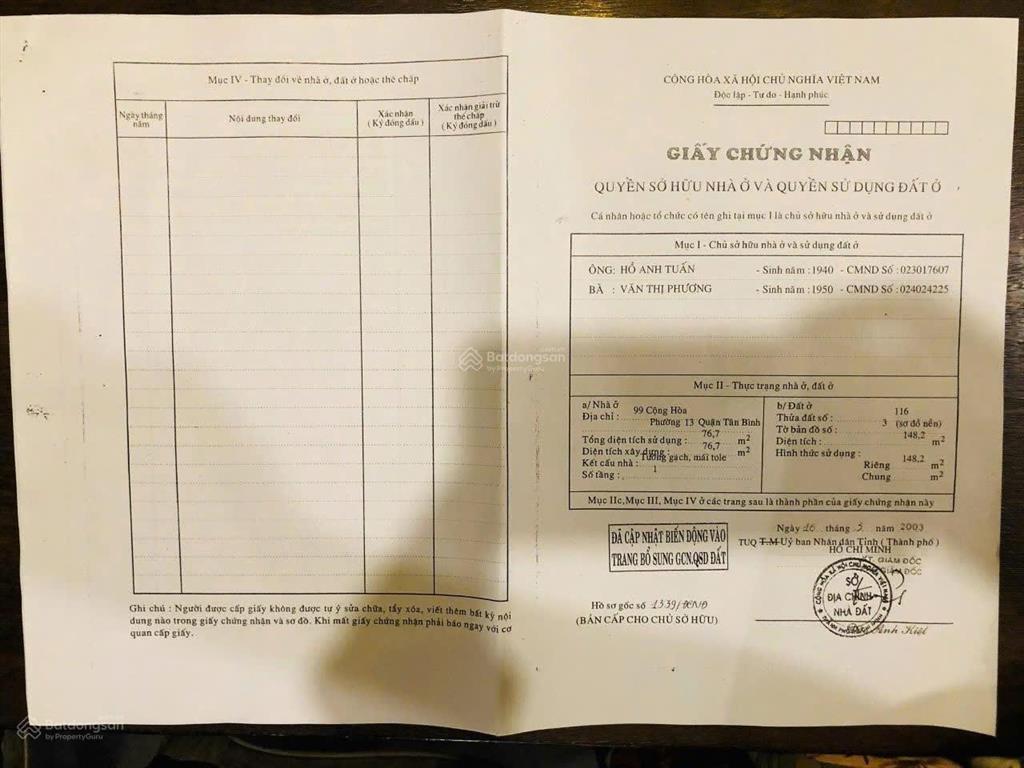 Mục IV - Thay đổi về nhà ở, đất ở hoặc thế chấp
Ngày tháng năm
Nội dung thay đổi
Xác nhận
( Ký đóng dấu )
Xác nhận giải trừ thế chấp
( Ký đóng dấu )
Ghi chú : Người được cấp giấy không được tự ý sửa chữa, tẩy xóa, viết thêm bất kỳ nội
dung nào trong giấy chứng nhận và sơ đồ. Khi mất giấy chứng nhận phải báo ngay với cơ
quan cấp giấy.
CỘNG HÒA XÃ HỘI CHỦ NGHĨA VIỆT NAM
Độc lập - Tự do - Hạnh phúc
GIẤY CHỨNG NHẬN
QUYỀN SỞ HỮU NHÀ Ở VÀ QUYỀN SỬ DỤNG ĐẤT Ở
Cá nhân hoặc tổ chức có tên ghi tại mục I là chủ sở hữu nhà ở và sử dụng đất ở
Mục I - Chủ sở hữu nhà ở và sử dụng đất ở
ÔNG: HỒ ANH TUẤN - Sinh năm : 1940 - CMND Số : 023017607
BÀ : VĂN THỊ PHƯƠNG - Sinh năm : 1950 - CMND Số : 024024225
Mục II - Thực trạng nhà ở, đất ở
a/ Nhà ở
Địa chỉ : 99 Cộng Hòa
Phường 13 Quận Tân Bình
Tổng diện tích sử dụng : 76,7 m2
Diện tích xây dựng : 76,7 m2
Kết cấu nhà : Tường gạch, mái tole
Số tầng : 1
b/ Đất ở
Thửa đất số : 116
Tờ bản đồ số : 3 (sơ đồ nền)
Diện tích : 148,2 m2
Hình thức sử dụng :
Riêng 148,2 m2
Chung m2
Mục IIc, Mục III, Mục IV ở các trang sau là thành phần của giấy chứng nhận này
ĐÃ CẬP NHẬT BIẾN ĐỘNG VÀO
TRANG BỔ SUNG GCN.QSD ĐẤT
Ngày 26 tháng 5 năm 2003
TUQ T.M Uỷ ban Nhân dân Tỉnh ( Thành phố )
HỒ CHÍ MINH
GIÁM ĐỐC
GIÁM ĐỐC
SỞ
ĐỊA CHÍNH
NHÀ ĐẤT
Hồ sơ gốc số 1339/
(BẢN CẤP CHO CHỦ SỞ HỮU)
Batdongsan
by PropertyGuru
Batdongsan
by PropertyGuru